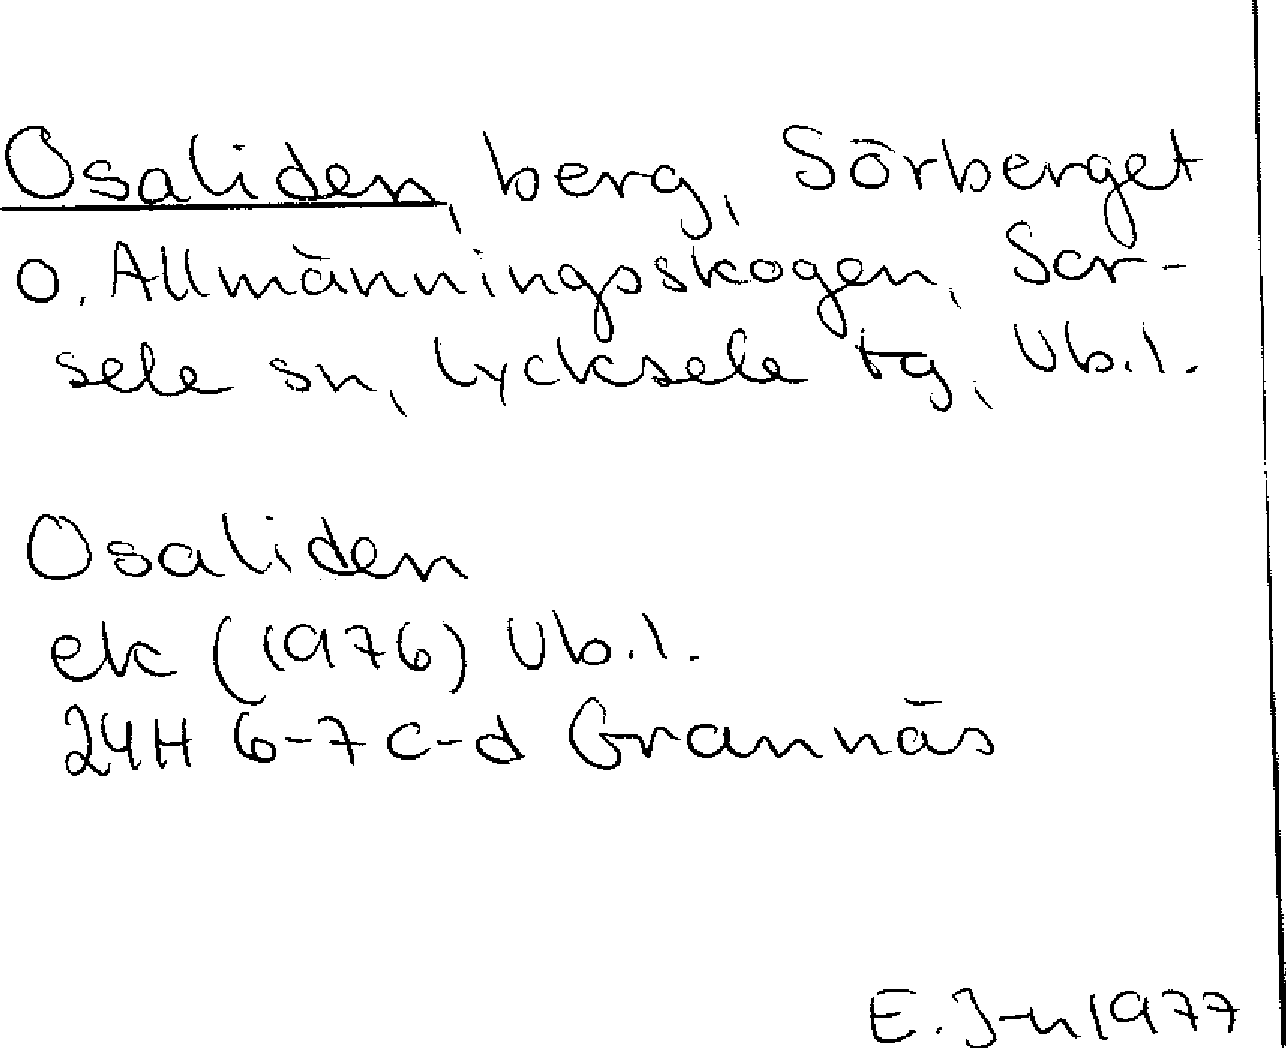 Osaliden, berg, Sörberget
o. Allmänningsskogen, Sor-
sele sn, Lycksele tg, Vb.l.
Osaliden
ek (1976) Vb.l.
24H 6-7 c-d Grannäs
E. J-n 1977